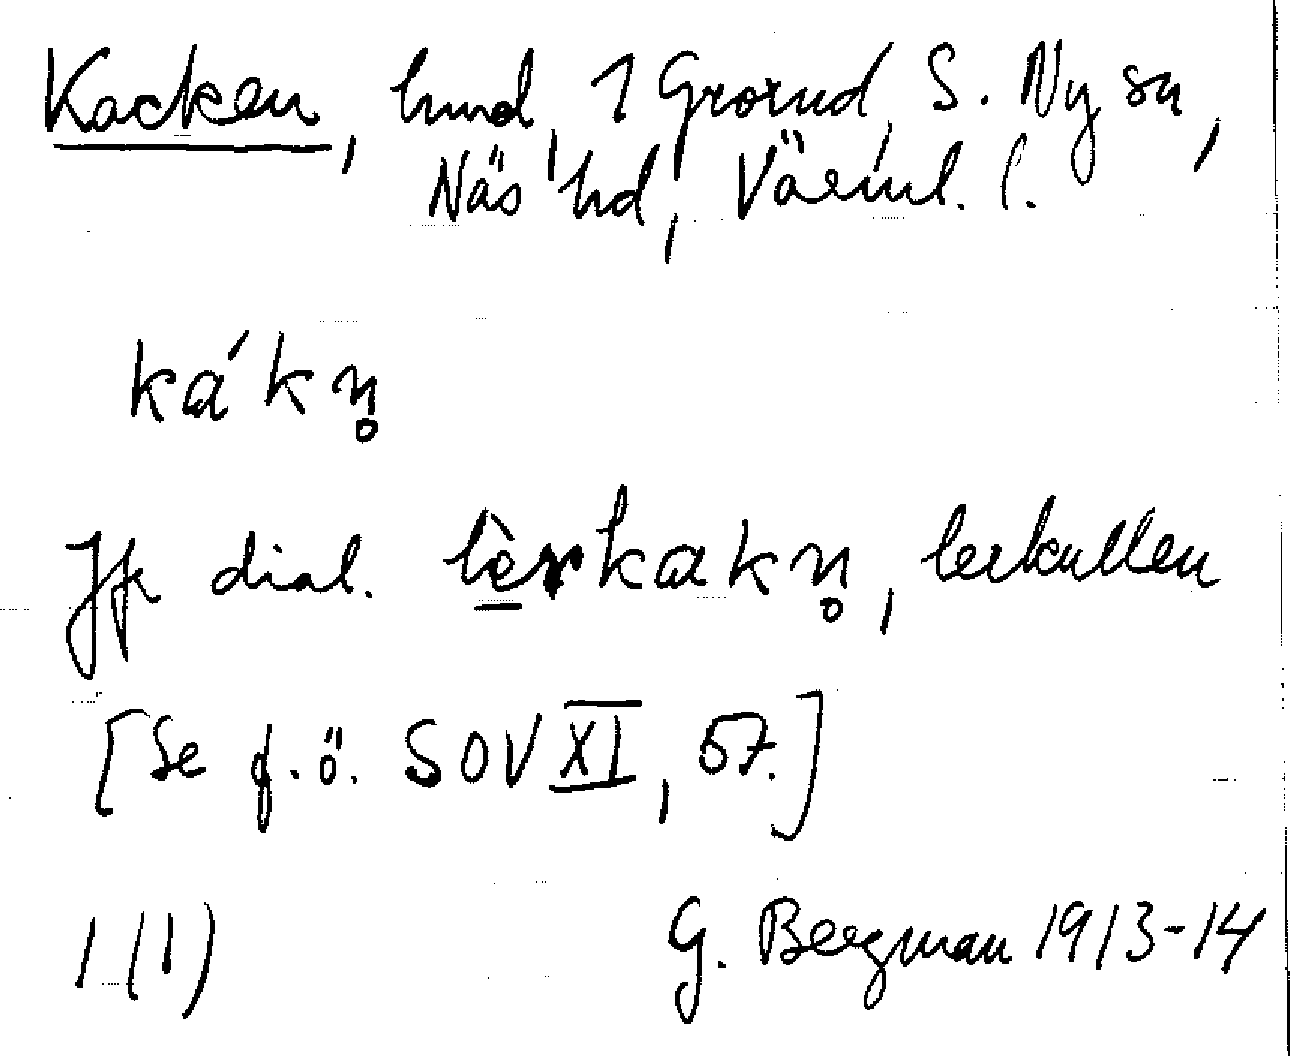 Kacken, hmd, 1 Grorud, S. Ny sn,
Näs hd, Värml. l.
ká k n̥
Jfr dial. lèrkakn̥, lerkullen
[Se f.ö. SOV XI, 57.]
1 (1) G. Bergman 1913-14